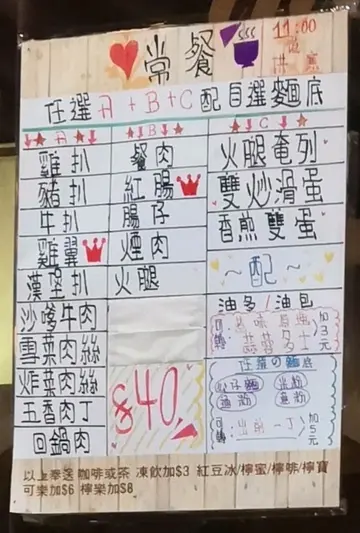 常餐
11:00
任選A+B+C配自選麵底
A
雞扒
豬扒
牛扒
雞翼
漢堡扒
沙嗲牛肉
雪菜肉絲
炸菜肉絲
五香肉丁
回鍋肉
B
餐肉
紅腸
腸仔
煙肉
火腿
$40.
C
火腿奄列
雙炒滑蛋
香煎雙蛋
~配~
油多/油包
可轉
蒜蓉多士
加3元
任選の麵底
公仔麵
通粉
意粉
可轉
出前一丁
加5元
以上奉送 咖啡或茶 凍飲加$3 紅豆冰/檸蜜/檸啡/檸寶
可樂加$6 檸樂加$8